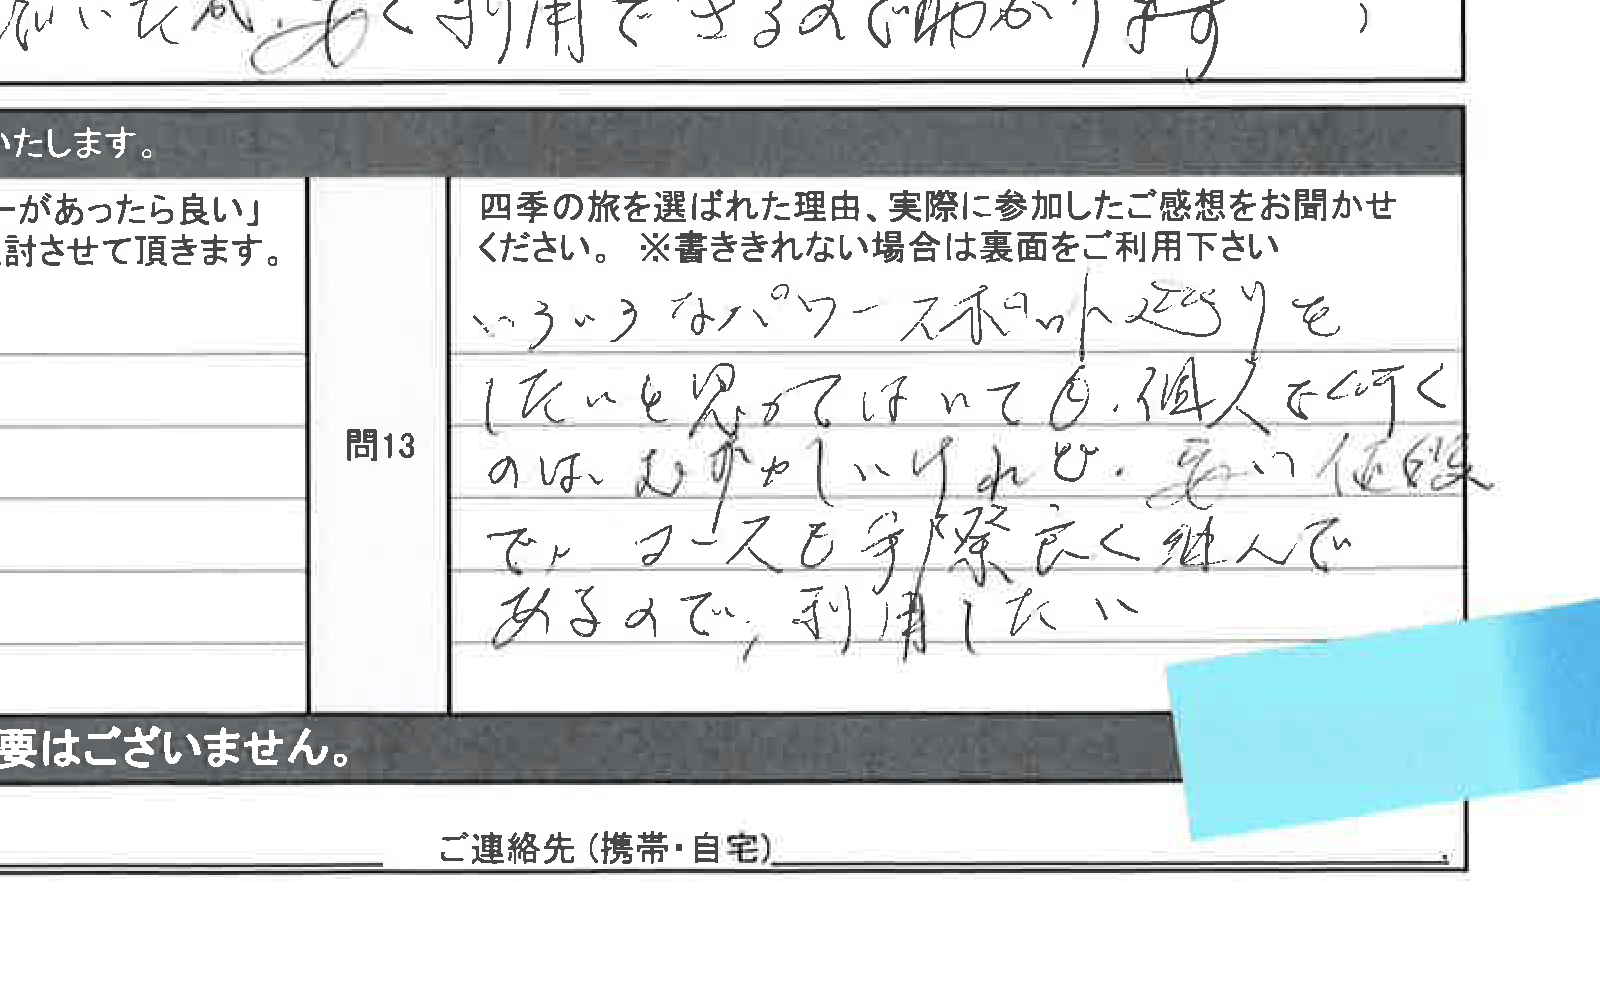 いたが、安く利用できるので助かります
いたします。
ーがあったら良い」
討させて頂きます。
問13
四季の旅を選ばれた理由、実際に参加したご感想をお聞かせ
ください。 ※書ききれない場合は裏面をご利用下さい
いろいろなパワースポット巡りを
したいと思ってはいても、個人で行く
のは、むずかしいけれど、安い値段
で、コースも手際良く組んで
あるので、利用したい
要はございません。
ご連絡先（携帯・自宅）